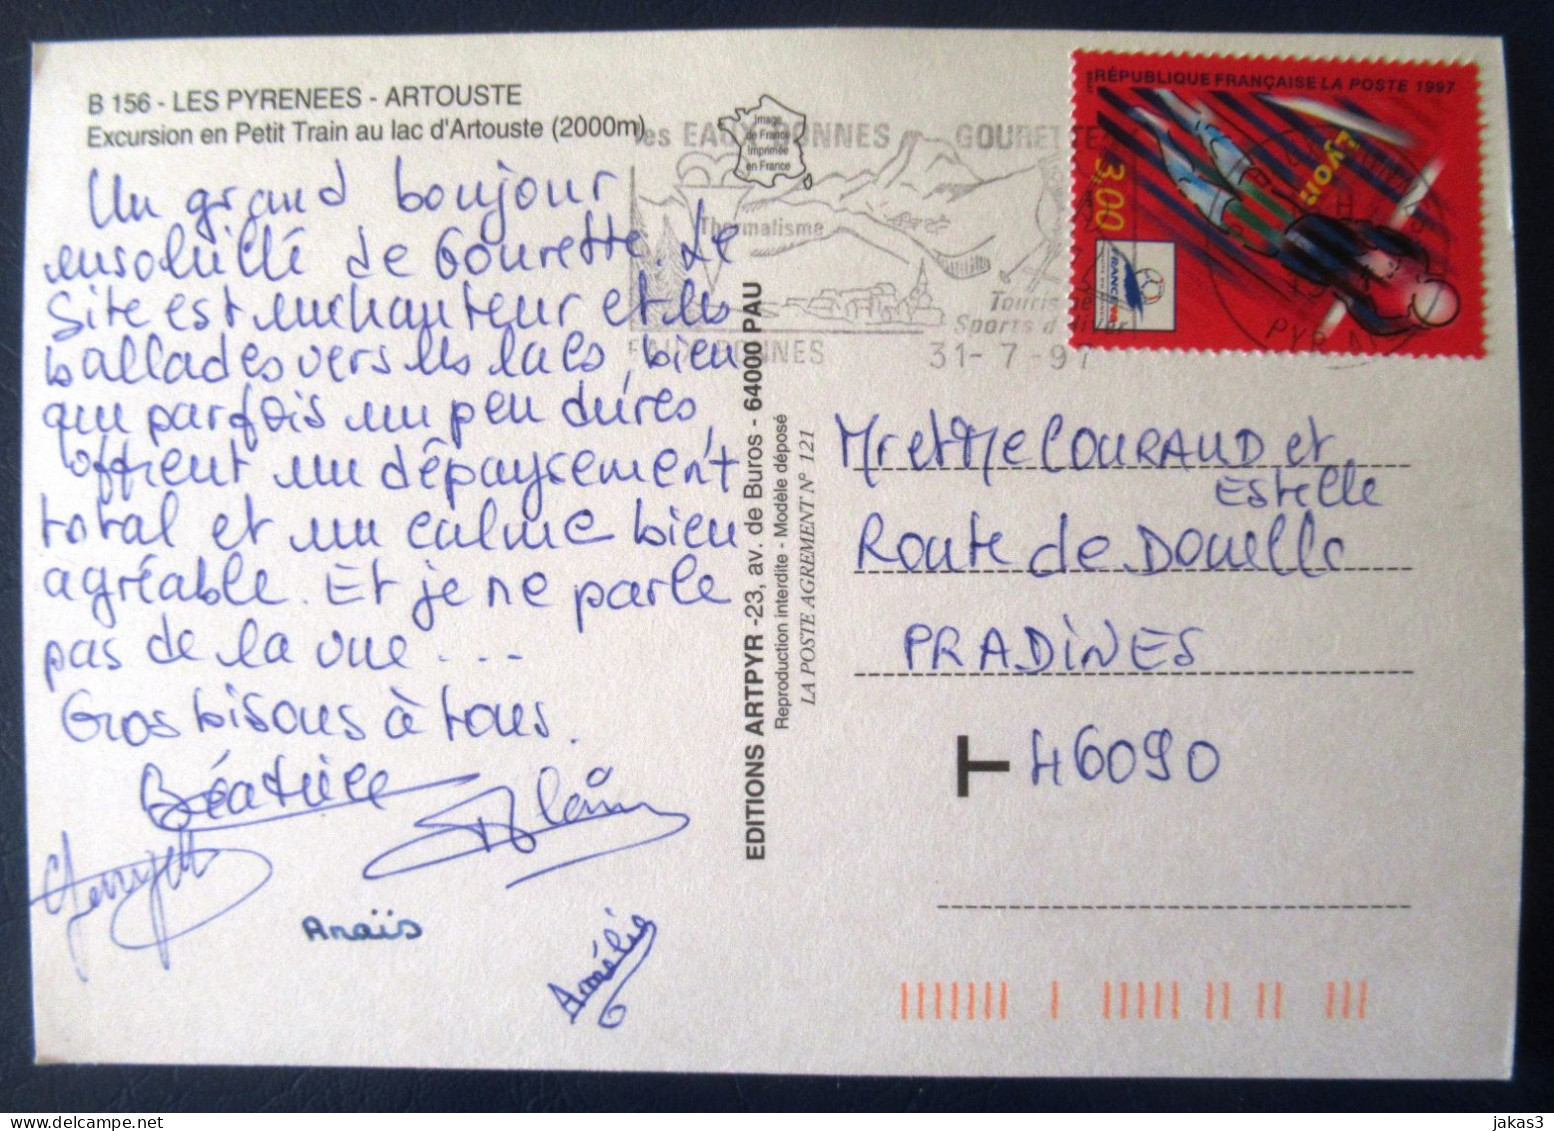 B 156 - LES PYRENEES - ARTOUSTE
Excursion en Petit Train au lac d'Artouste (2000m)
Un grand boujour
ensoleillé de Gourette. Le
site est enchanteur et les
ballades vers les lacs, bien
que parfois un peu dures,
offrent un dépaysement
total et un calme bien
agréable. Et je ne parle
pas de la vue ...
Gros bisous à tous.
Béatrice
Alain
Anaïs
Amélie
Image
de France
Imprimée
en France
les EAUX BONNES GOURETTE
Thermalisme
Tourisme
Sports d'hiver
EAUX BONNES 31-7-97
RÉPUBLIQUE FRANÇAISE LA POSTE 1997
Lyon
3,00
FRANCE
EDITIONS ARTPYR -23, av. de Buros - 64000 PAU
Reproduction interdite - Modèle déposé
LA POSTE AGREMENT N° 121
Mr et Me COURAUD et
Estelle
Route de Douelle
PRADINES
T 46090
jakas3